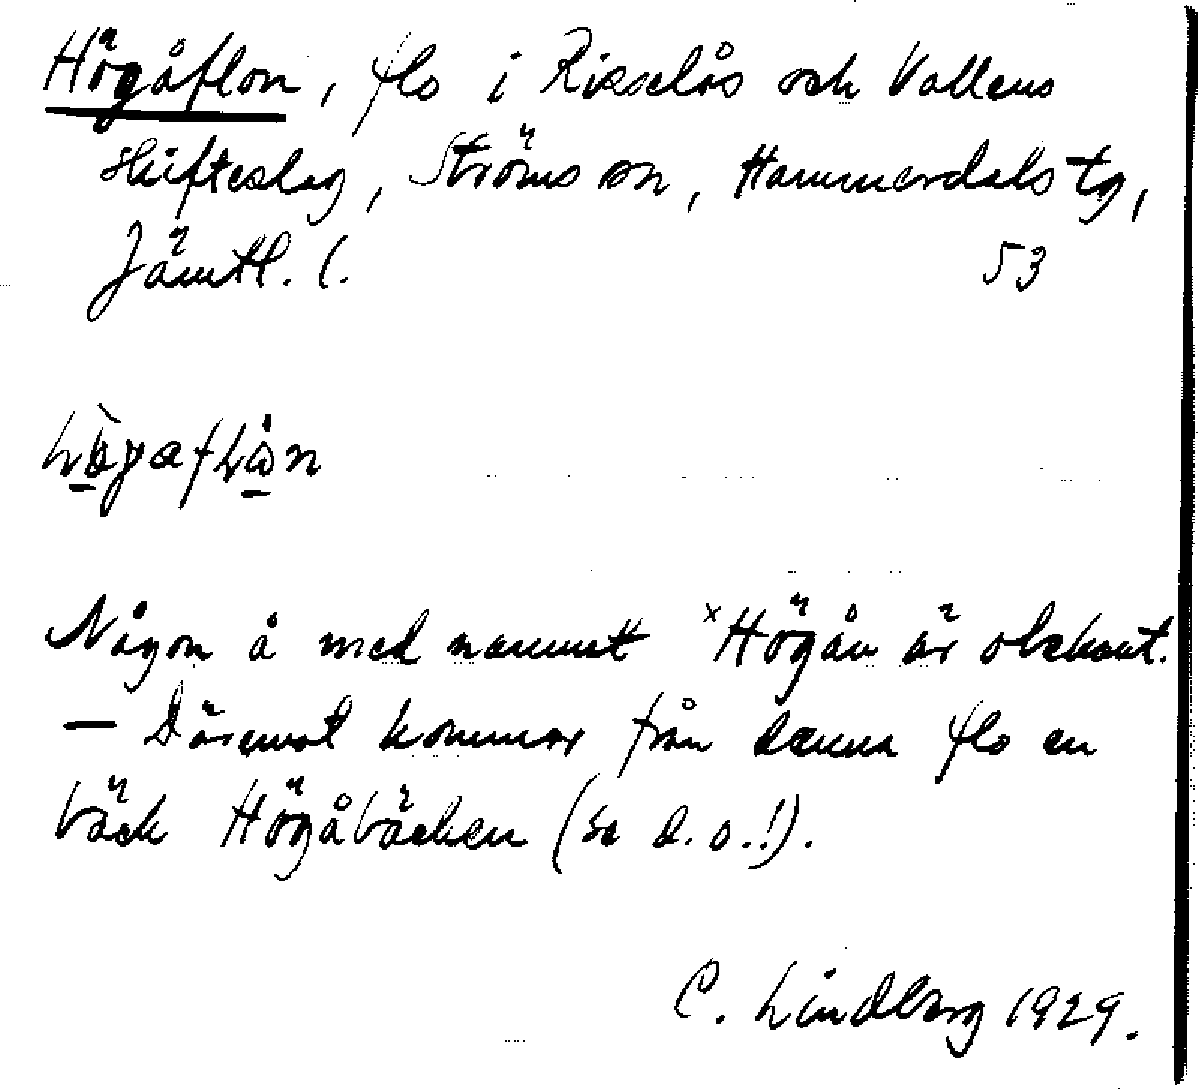 Högåflon, flo i Risselås och Vallens
skifteslag, Ströms sn, Hammerdals tg,
Jämtl. l. 53
Någon å med namnet ˣHögån är obekant.
— Däremot kommer från denna flo en
bäck Högåbäcken (se d. o.!).
C. Lindberg 1929.